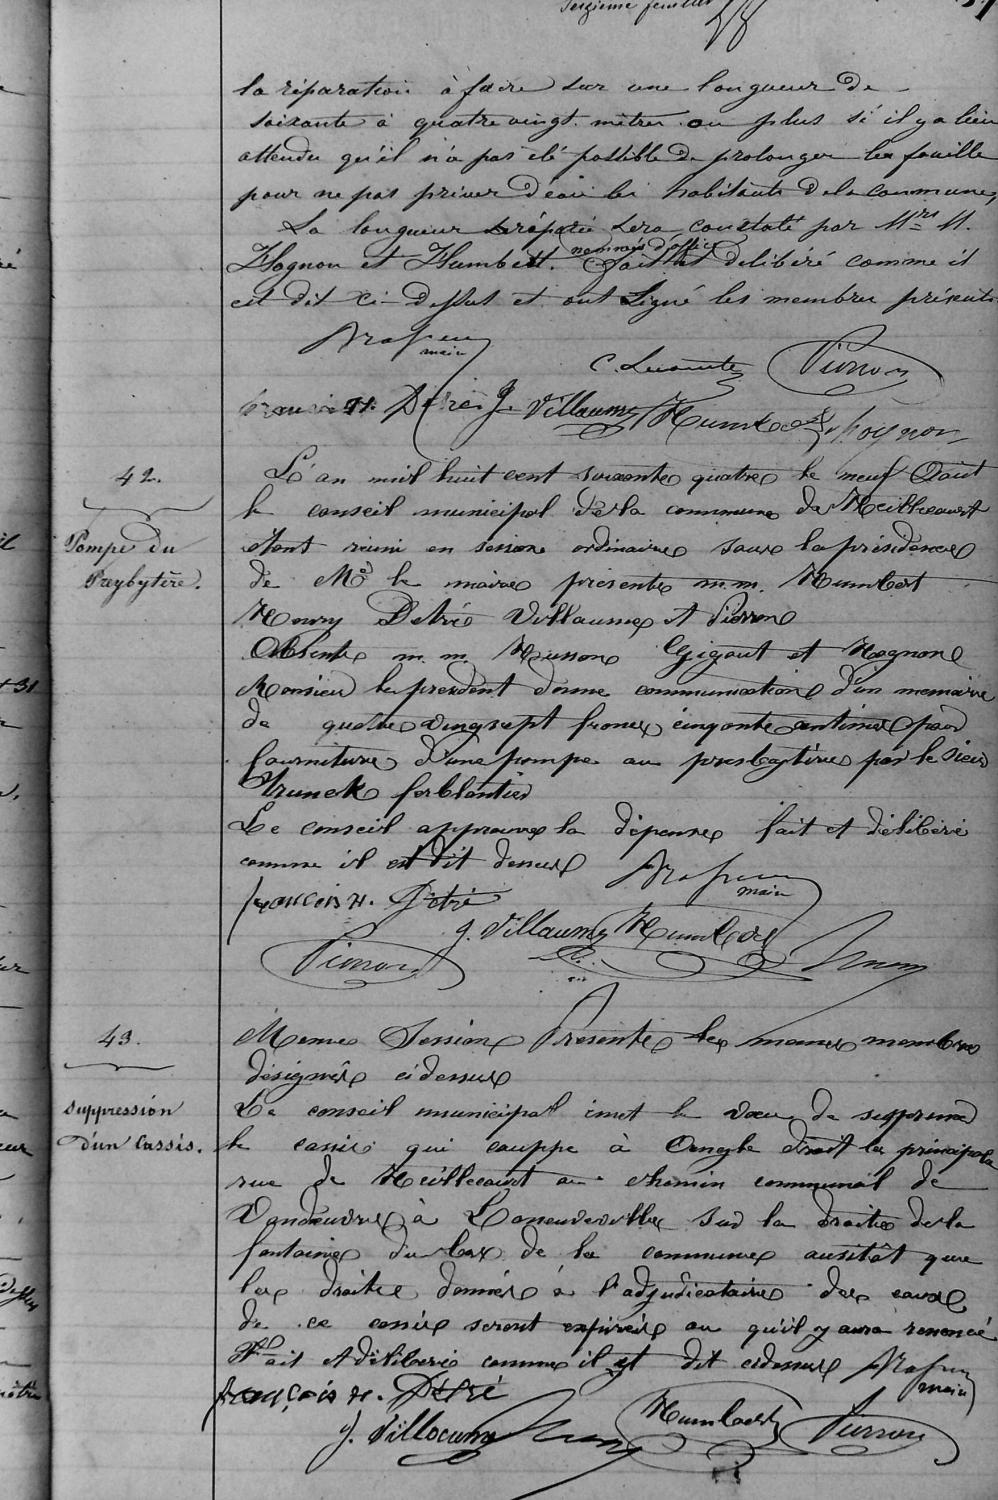 seizième feuillet
la réparation à faire sur une longueur de
soixante à quatre vingt mètres ou plus si il y a lieu
attendu qu'il n'a pas été possible de prolonger les fouilles
pour ne pas priver d'eau les habitants de la commune,
La longueur réparée sera constaté par Mrs M.
nommés d'office
Hognon et Humbert. Fait et délibéré comme il
est dit ci-dessus et ont signé les membres présents
maire
C. Lecomte Pierron
françois h. Détré J. Villaume Humbert Hognon
42.
Pompe du
Presbytère.
L'an mil huit cent soixante quatre le neuf Aout
le conseil municipal de la commune de Heillecourt
étant réuni en session ordinaire sous la présidence
de Mr le maire présents m.m. Humbert
Henry Detré Villaume et Pierron
Absents m.m. Husson Gigout et Hognon
Monsieur le president donne communication d'un memoire
de quatre vingsept francs cinquante centimes pour
fourniture d'une pompe au presbytère par le sieur
ferblantier
Le conseil approuve la dépense fait et délibéré
comme il est dit dessus
maire
françois h. Détré
J. Villaume Humbert
Pierron
43.
suppression
d'un Cassis.
Meme Session Presents les memes membres
désignés cidessus
Le conseil municipal émet le voeu de supprimer
le cassis qui couppe à Angle droit la principale
rue de Heillecourt au chemin communal de
Vandeuvre à Laneuveville sur la droite de la
fontaine du bas de la commune ausitôt que
les droits donnés à l'adjudicataire des eaux
de ce cassis seront expirés ou qu'il y aura renoncé
Fait et délibéré comme il est dit cidessus
maire
françois h. Détré
J. Villaume Humbert Pierron